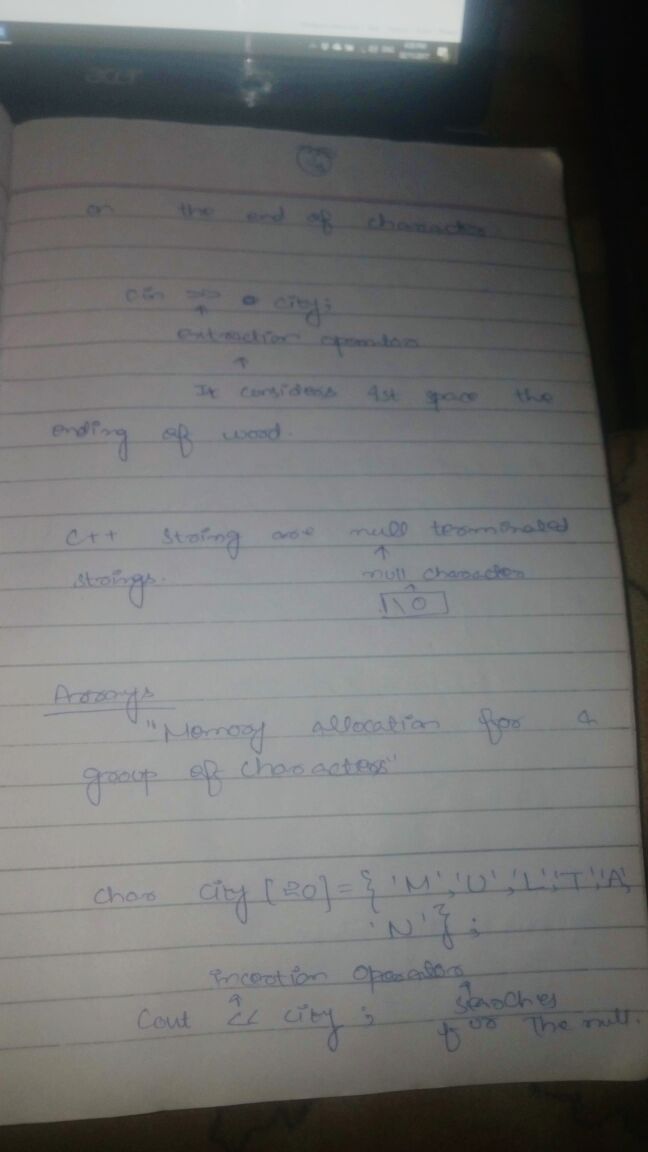 acer
on the end of character
cin >> city;
↑
extraction operator
↑
It considers 1st space the
ending of word.
C++ string are null terminated
↑
strings. null character
↑
\0
Arrays
"Memory allocation for a
group of characters"
char city [20] = { 'M', 'U', 'L', 'T', 'A',
'N' } ;
insertion operator
↑ ↑
Cout << city ; searches
for the null.